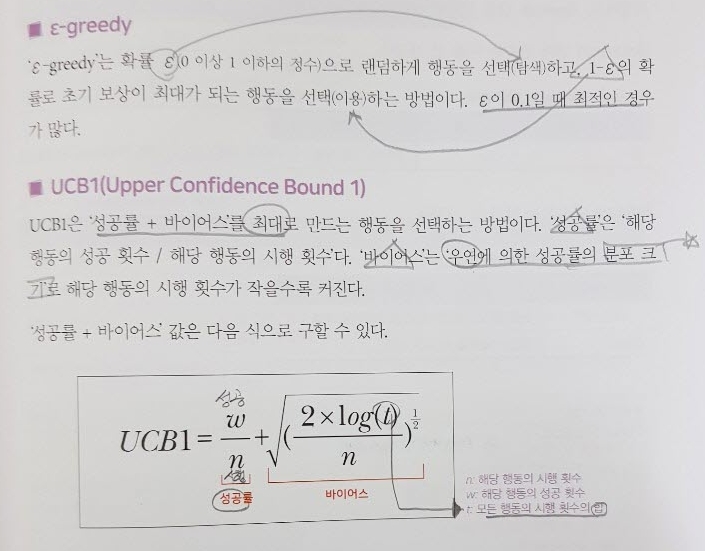 ■ ε-greedy
'ε-greedy'는 확률 ε(0 이상 1 이하의 정수)으로 랜덤하게 행동을 선택(탐색)하고, 1-ε의 확
률로 초기 보상이 최대가 되는 행동을 선택(이용)하는 방법이다. ε이 0.1일 때 최적인 경우
가 많다.
■ UCB1(Upper Confidence Bound 1)
UCB1은 '성공률 + 바이어스'를 최대로 만드는 행동을 선택하는 방법이다. '성공률'은 '해당
행동의 성공 횟수 / 해당 행동의 시행 횟수'다. '바이어스'는 '우연에 의한 성공률의 분포 크
기'로 해당 행동의 시행 횟수가 작을수록 커진다.
'성공률 + 바이어스' 값은 다음 식으로 구할 수 있다.
성공
UCB1 = w/n + √((2×log(t))/n)^1/2
시행
성공률 바이어스
n: 해당 행동의 시행 횟수
w: 해당 행동의 성공 횟수
t: 모든 행동의 시행 횟수의 합